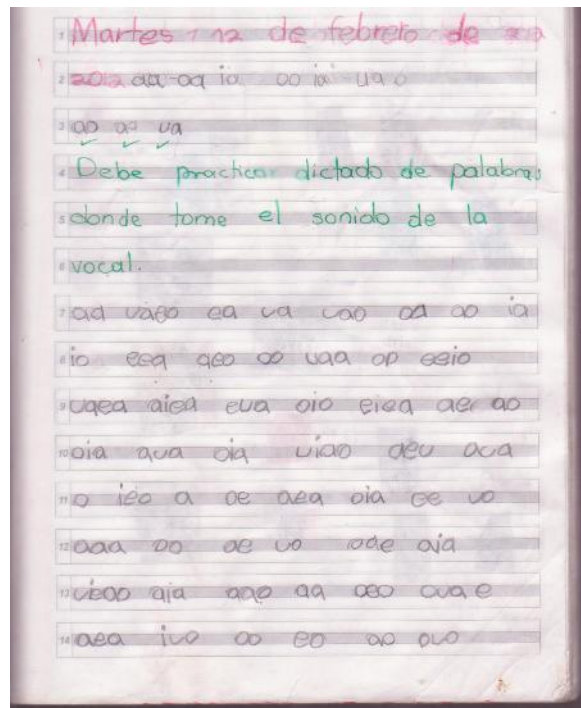 1 Martes 12 de febrero de
2 2012 aa-oa ia oo ia ua o
3 ao ao ua
4 Debe practicar dictado de palabras
5 donde tome el sonido de la
6 vocal.
7 ad vaeo ea ua uao oa ao ia
8 io eea aeo oo uaa op eeio
9 uaea aiea eua oio eiea aer ao
10 oia aua oia uiao aeu aua
11 o ieo a oe aea oia ee uo
12 aaa oo oe uo ooe aia
13 uieao aia aao aa oeo oua e
14 aea iuo oo eo ao ouo